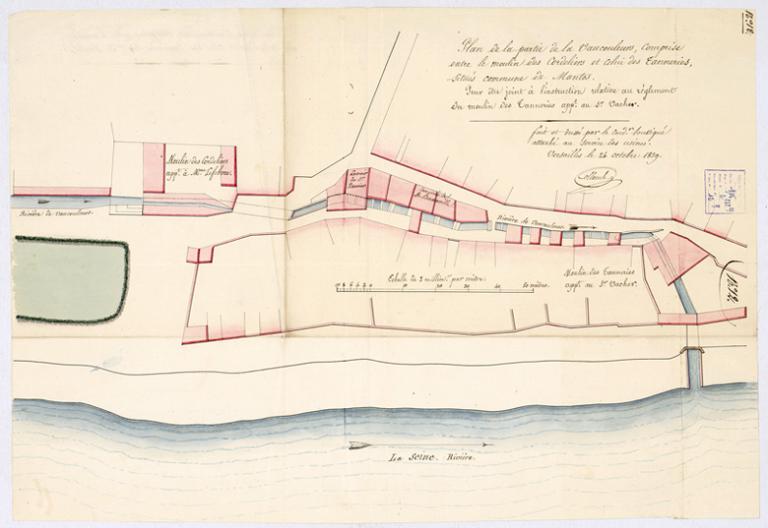 Plan de la partie de la Vaucouleurs, comprise
entre le moulin des Cordeliers et celui des Tanneries,
situés commune de Mantes.
Pour être joint à l'instruction relative au règlement
du moulin des Tanneries appt. au Sr. Vacher.
fait et dressé par le Cond.r soussigné
attaché au service des usines.
Versailles le 24 octobre 1839.
Moulin des Cordeliers
appt. à Mme Lefebvre.
Rivière de Vaucouleurs.
Rivière de Vaucouleurs
Echelle de 2 millim. par mètre.
10 20 30 40 50 mètres.
Moulin des Tanneries
appt. au Sr. Vacher.
La Seine. Rivière.